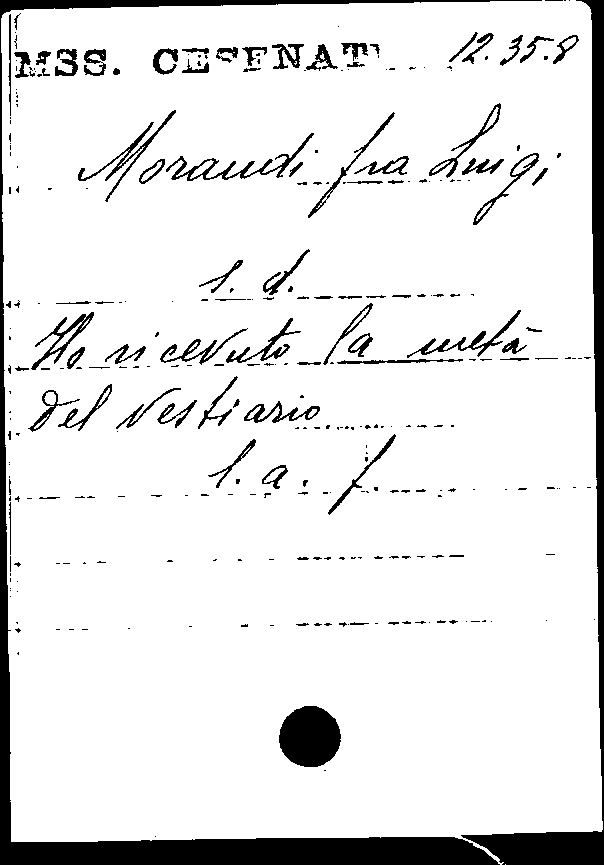 MSS. CESENATI 12.35.8
Morandi fra Luigi
s. d.
Ho ricevuto la metà
del vestiario
l. a. f.